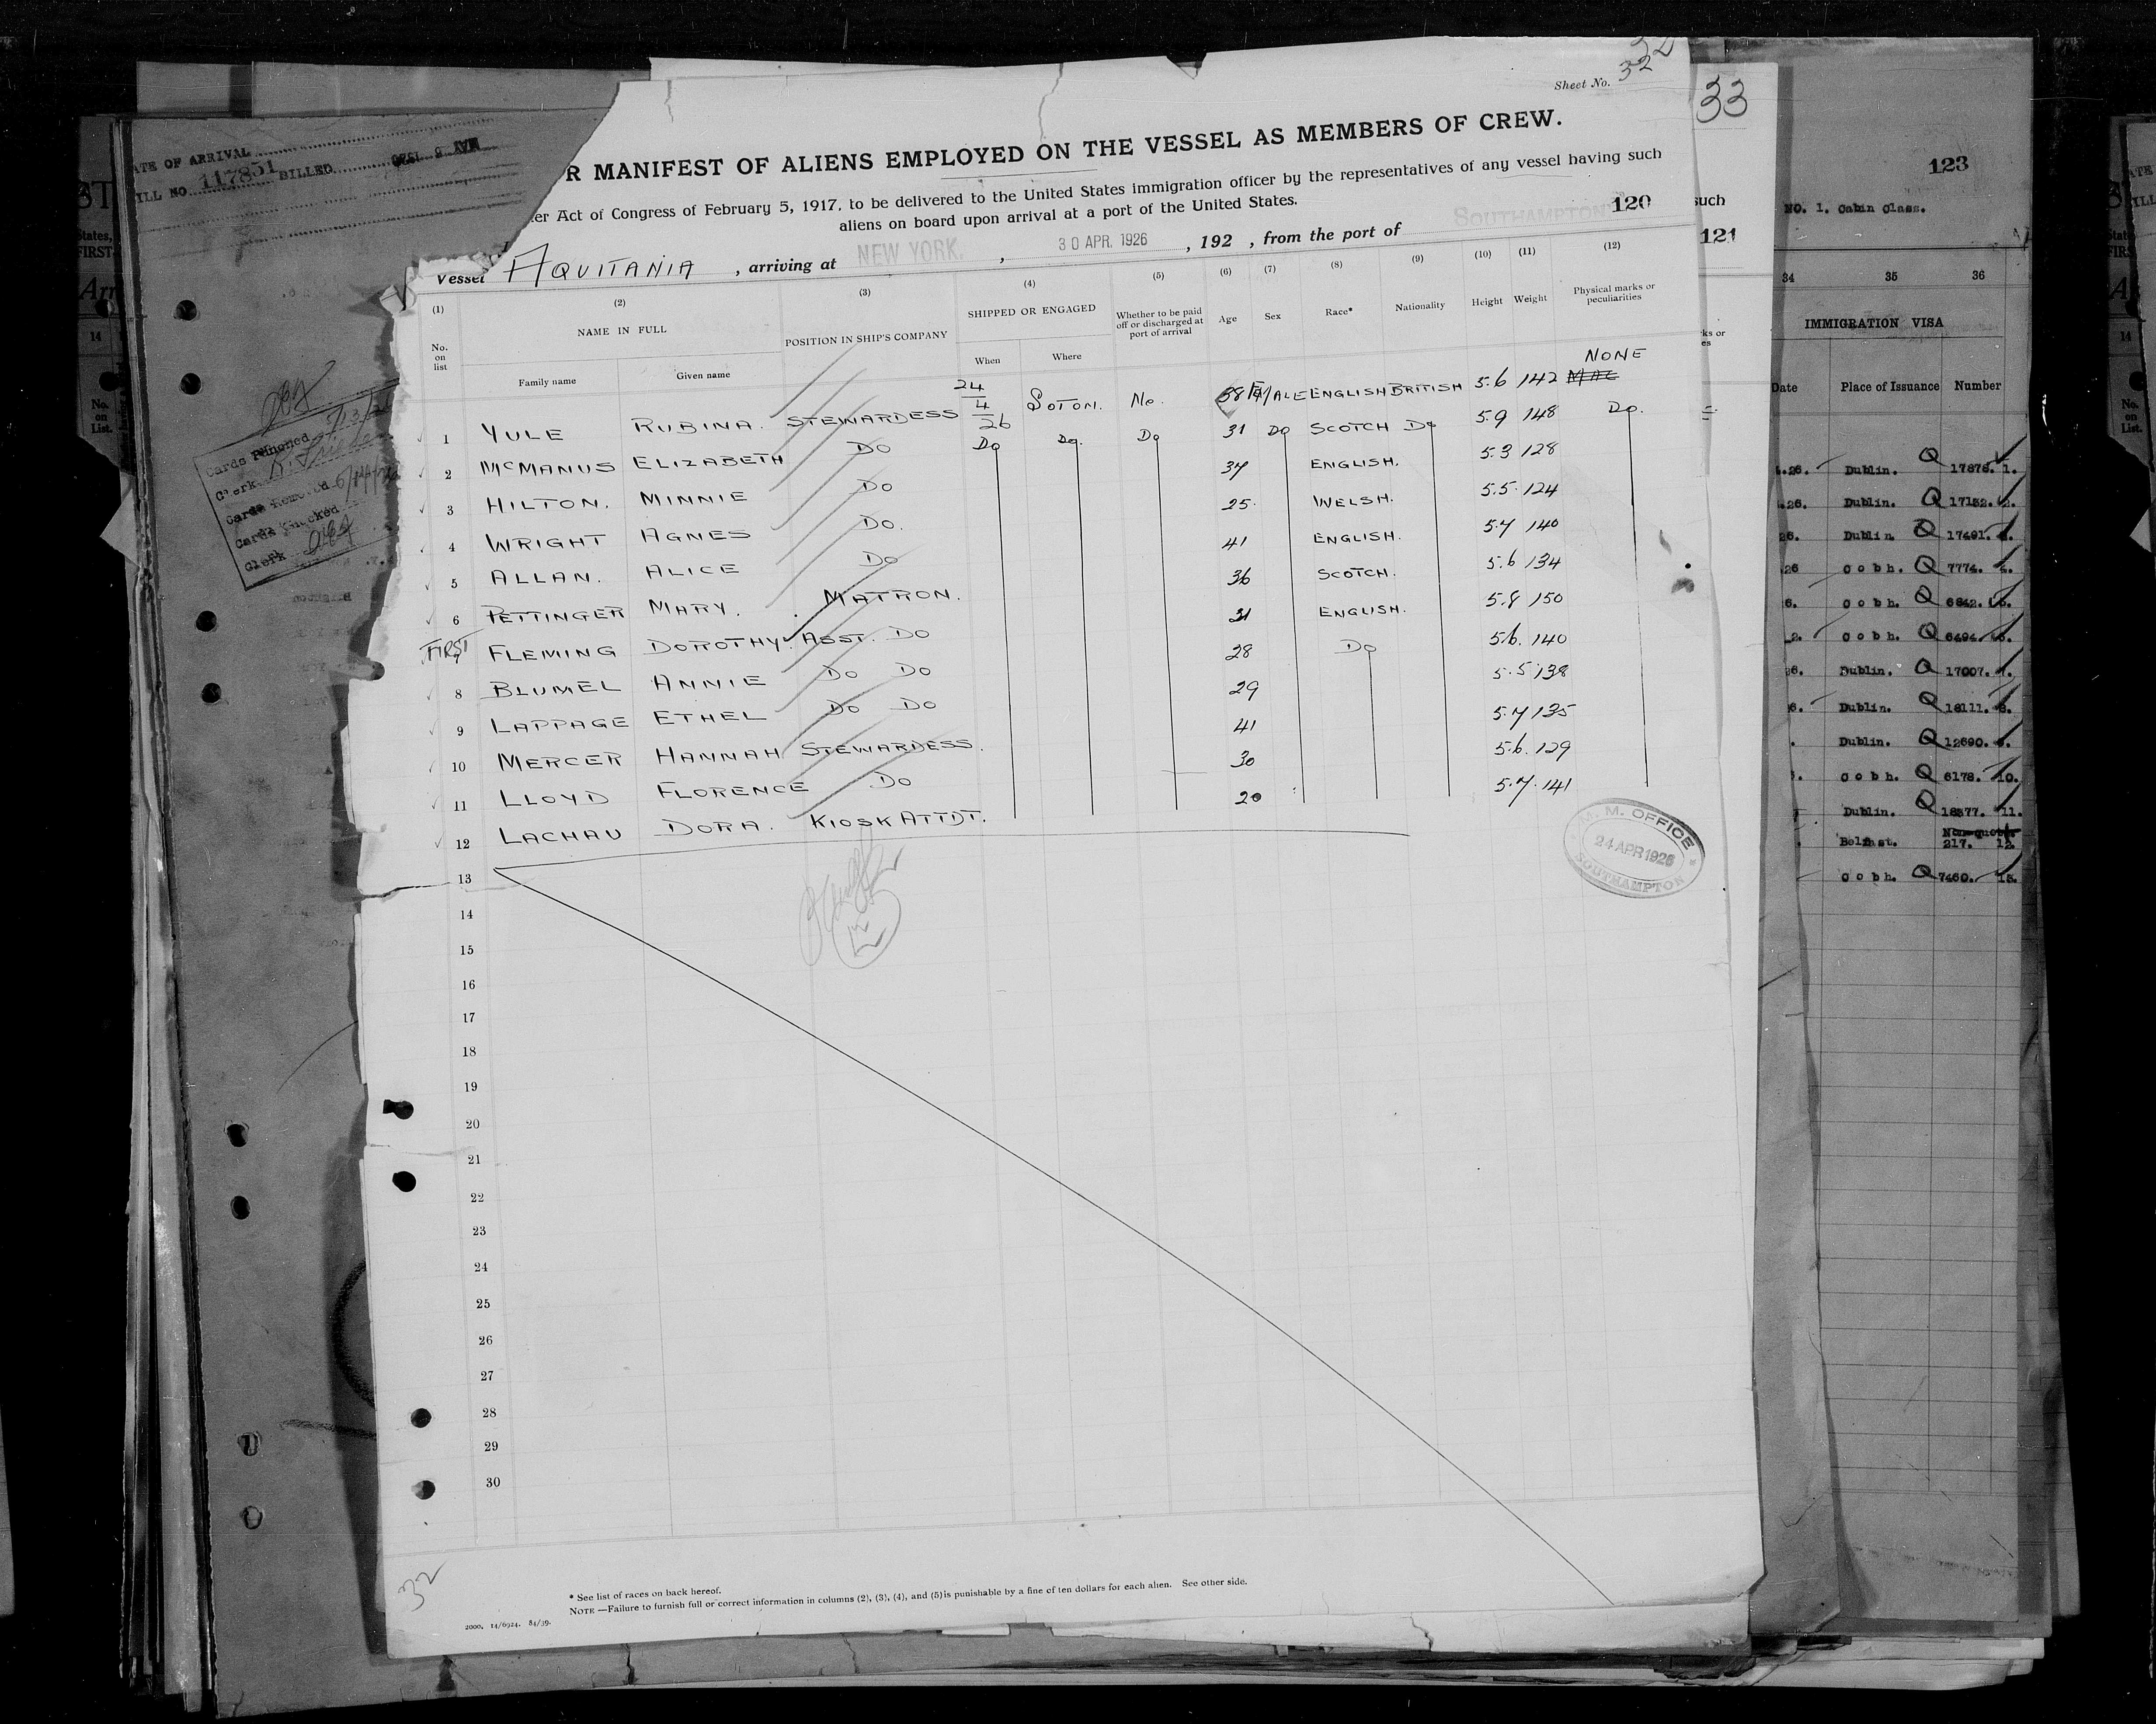 Sheet No. 32
32
33
R MANIFEST OF ALIENS EMPLOYED ON THE VESSEL AS MEMBERS OF CREW.
er Act of Congress of February 5, 1917, to be delivered to the United States immigration officer by the representatives of any vessel having such
aliens on board upon arrival at a port of the United States.
120
Vessel AQUITANIA , arriving at NEW YORK. , 30 APR. 1926 , 192 , from the port of SOUTHAMPTON
(1) (2) (3) (4) (5) (6) (7) (8) (9) (10) (11) (12)
No. on list NAME IN FULL POSITION IN SHIP'S COMPANY SHIPPED OR ENGAGED Whether to be paid off or discharged at port of arrival Age Sex Race* Nationality Height Weight Physical marks or peculiarities
Family name Given name When Where
1 YULE RUBINA. STEWARDESS 24/4/26 SOTON. No. 38 F/MALE ENGLISH BRITISH 5.6 142 NONE
2 McMANUS ELIZABETH DO Do Do. Do 31 DO SCOTCH Do 5.9 148 Do.
3 HILTON. MINNIE DO 34 ENGLISH. 5.3 128
4 WRIGHT AGNES DO. 25. WELSH. 5.5. 124
5 ALLAN. ALICE DO 41 ENGLISH. 5.7 140
6 PETTINGER MARY. MATRON. 36 SCOTCH. 5.6 134
FIRST
7 FLEMING DOROTHY. ASST. DO 31 ENGLISH. 5.8 150
8 BLUMEL ANNIE DO DO 28 Do 5.6. 140
9 LAPPAGE ETHEL DO DO 29 5.5 138
10 MERCER HANNAH STEWARDESS. 41 5.7 135
11 LLOYD FLORENCE DO 30 5.6. 129
12 LACHAU DORA. KIOSK ATTDT. 20 5.7. 141
13
14
15
16
17
18
19
20
21
22
23
24
25
26
27
28
29
30
M. M. OFFICE
24 APR 1926
SOUTHAMPTON
32
* See list of races on back hereof.
NOTE —Failure to furnish full or correct information in columns (2), (3), (4), and (5) is punishable by a fine of ten dollars for each alien. See other side.
2000. 14/6924. 84/39.
ATE OF ARRIVAL
ILL NO. 117851 BILLED
Cards Punched
Clerk
Cards Removed
Cards Checked
Clerk
such
121
123
NO. 1. Cabin Class.
34 35 36
IMMIGRATION VISA
Date Place of Issuance Number
Dublin. Q 17878. 1.
Dublin. Q 17132. 2.
Dublin. Q 17491.
Cobh. Q 7774.
Cobh. Q 6842.
Cobh. Q 6494.
Dublin. Q 17007. 7.
Dublin. Q 18111. 8.
Dublin. Q 12690.
Cobh. Q 6178. 10.
Dublin. Q 18377. 11.
Belfast. Non-quota 217. 12.
Cobh. Q 7460. 13.